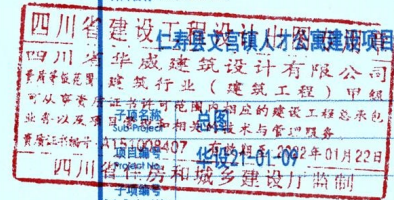 四川省建设工程设计出图专用章
仁寿县文宫镇人才公寓建设项目
四川省华成建筑设计有限公司
资质等级范围：建筑行业（建筑工程）甲级
可从事资质证书许可范围内相应的建设工程总承包
业务以及项目管理和相关的技术与管理服务
子项名称
Sub-Project
总图
资质证书编号：A151008407
有效期至：2022年01月22日
项目编号
Project No.
华设21-01-09
四川省住房和城乡建设厅监制
子项编号